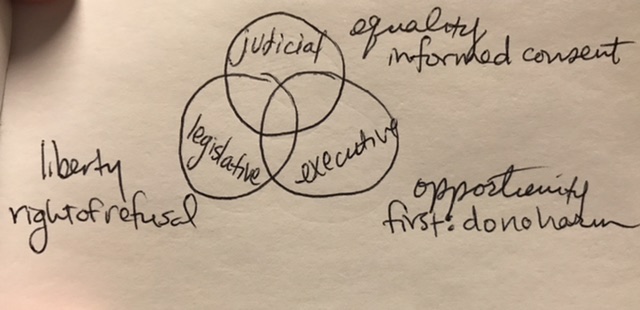 judicial
equality
informed consent
legislative
executive
liberty
right of refusal
opportunity
first: do no harm